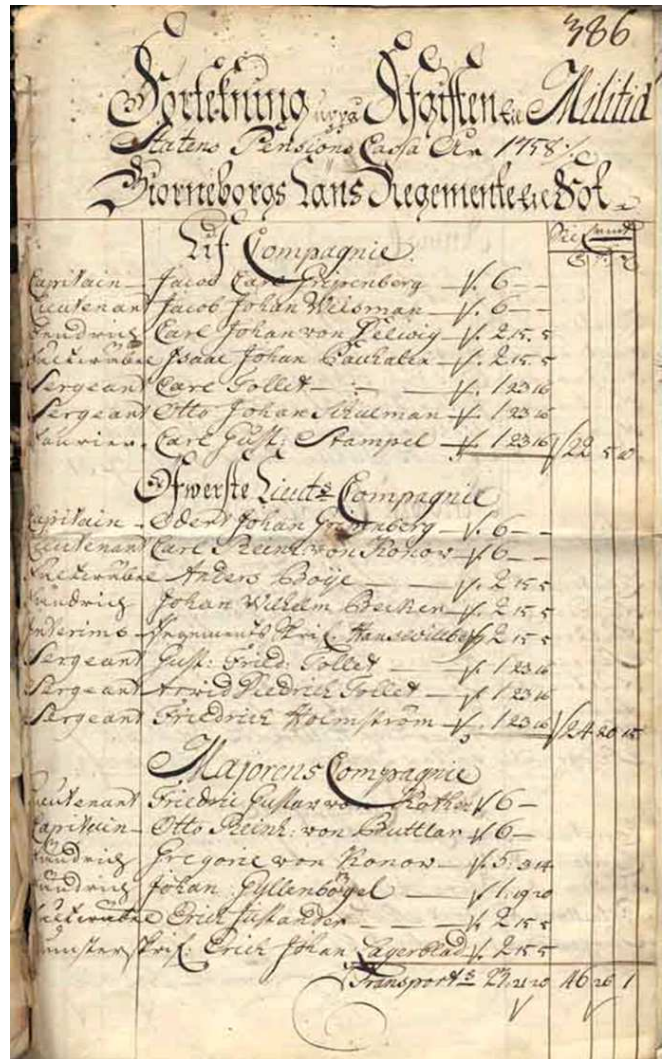 386
Förtekning uppå Afgifften till Militiæ
Statens Pensions Cassa År 1758 ·/.
Biörneborgs Läns Regemente till Fot
Lif Compagnie.
Capitain – Jacob Carl Gripenberg – 6 – –
Lieutenant Jacob Johan Welsman – 6 – –
Fendrich Carl Johan von Helwig – 2. 15. 5
Isaac Johan – 2. 15. 5
Sergeant Carl Tollet – – 1 23 16
Sergeant Otto Johan – 1 23 16
Carl Gust: Stampel – 1 23 16 22 5
Öfwerste Lieut:s Compagnie
Capitain – Odert Johan Gripenberg – 6 – –
Lieutenant Carl Reinh: von Konow – 6 – –
Anders Böije – – 2 15 5
Fendrich Johan Wilhelm Becker – 2 15 5
Interims – Regements Skrif. 2 15 5
Sergeant Gust: Fried: Tollet – 1 23 16
Sergeant Arwid Diedrich Tollet – 1 23 16
Sergeant Friedrich Holmström – 1 23 16 24 20 15
Majorens Compagnie
Lieutenant Friedric Gustav von 6 –
Capitain – Otto Reinh: von Buttlar 6 –
Fendrich Gregorie von Konow – 5. 3 14
Fendrich Johan Gyllenbögel – 1: 19 20
Erich – 2 15 5
Erich Johan Lagerblad 2 15 5
Transport:s 23: 21 20 46 26 1